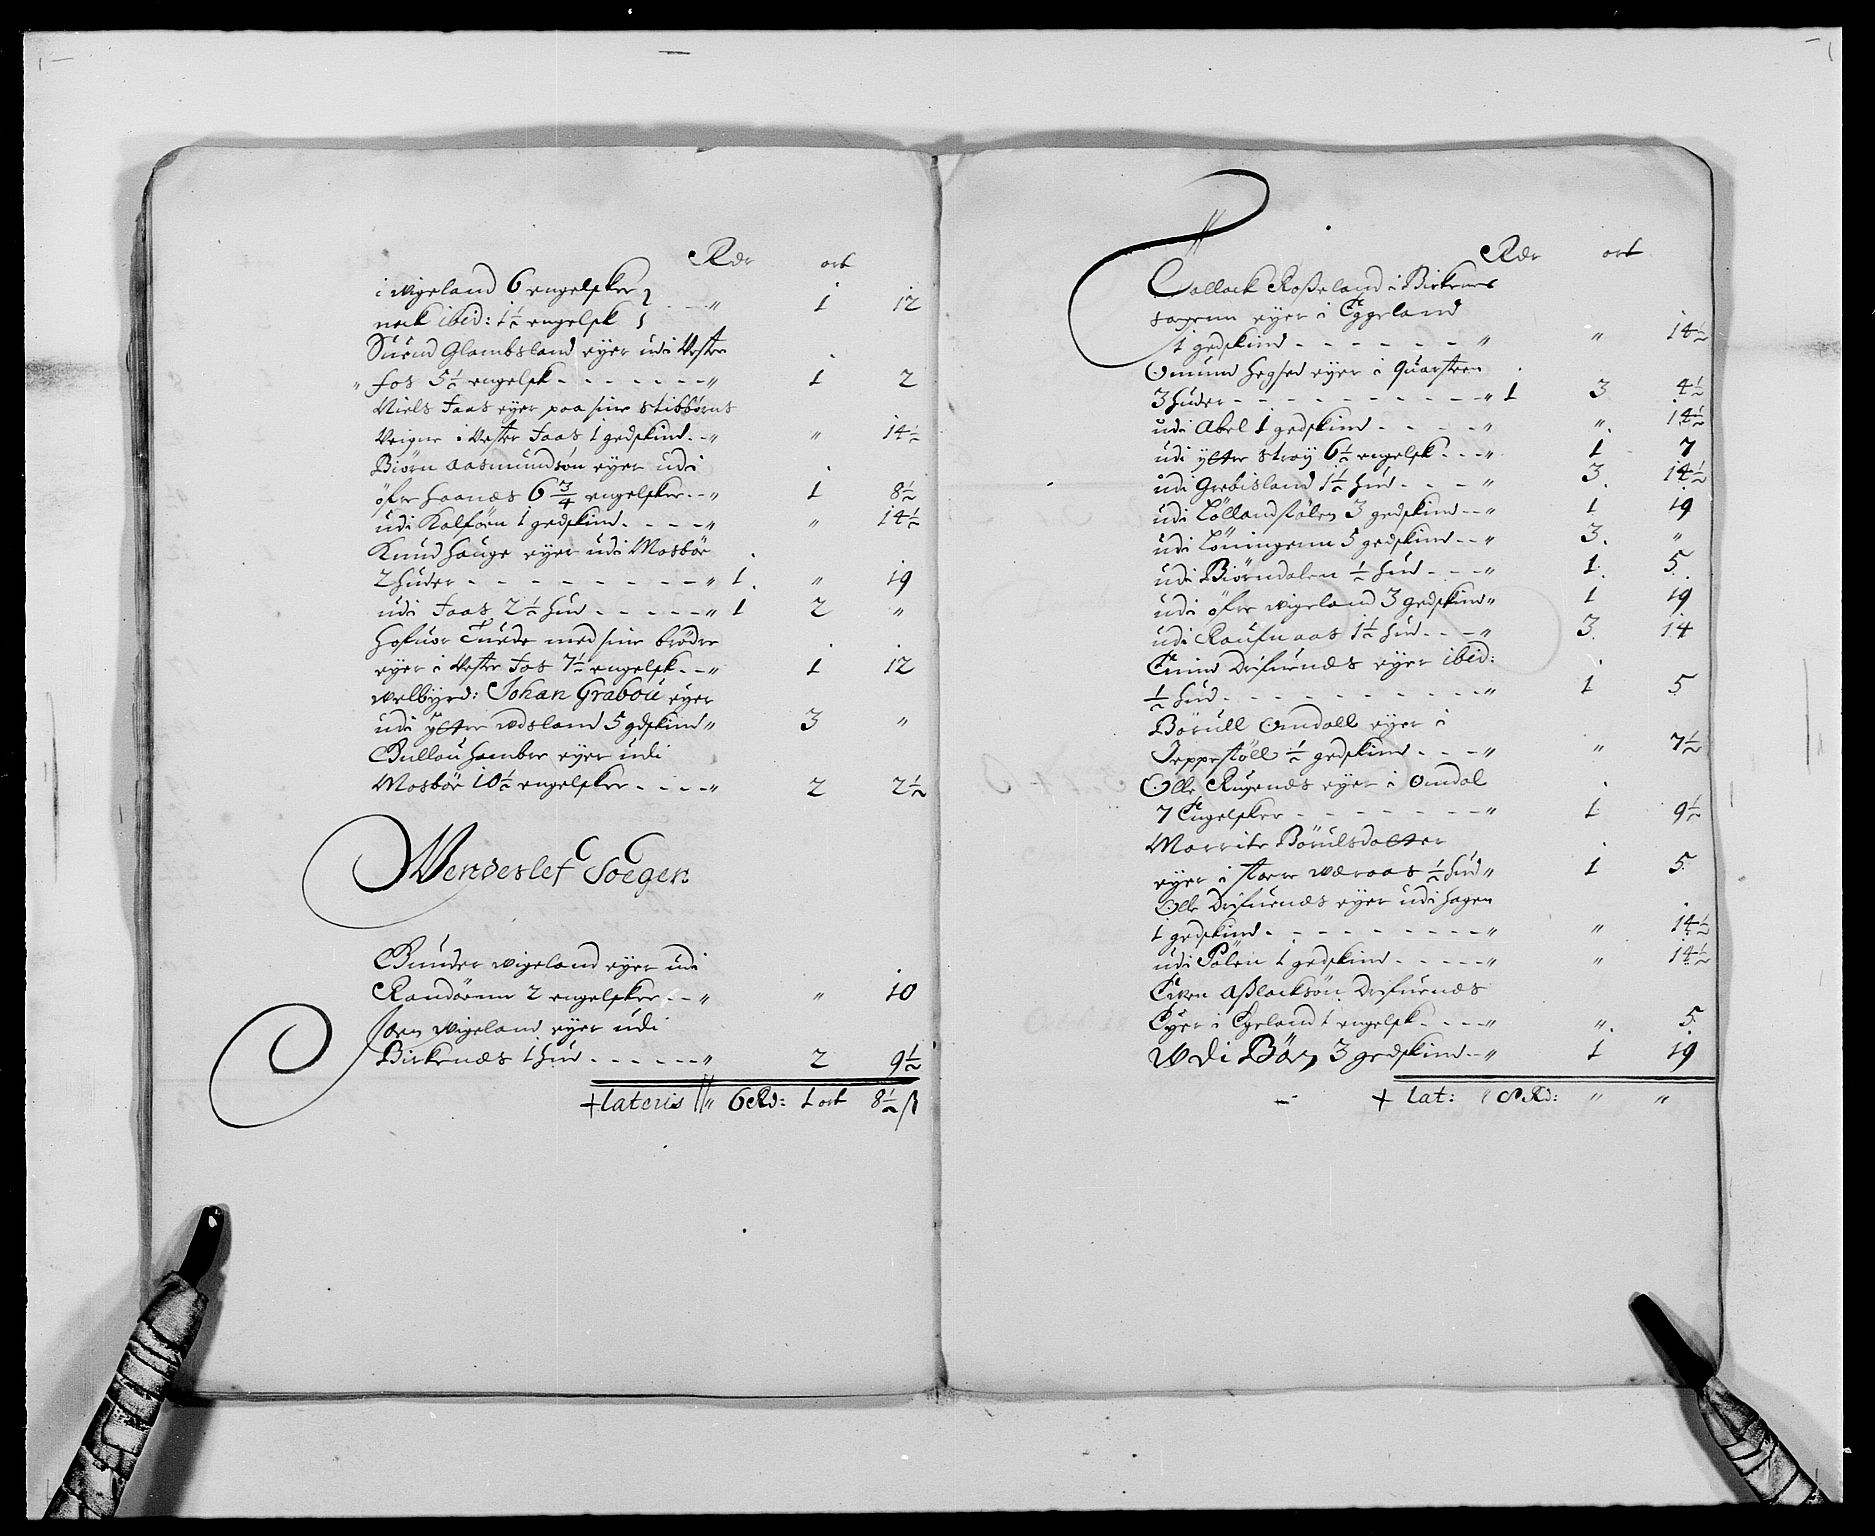 Rdr ort
i wigeland 6 engelsker
nock ibid: 1½ engelsk " 1 12
Suend Glambsland eyer udi Vester
fos 5½ engelsk - - - - - - - " 1 2
Niels Faas eyer paa sine stibbørns
Veigne i Vester Faas 1 gedskind - - " " 14½
Biørn Aasmundsøn eyer udi
øfre haanæs 6¾ engelsker - - " 1 8½
udi Kalføen 1 gedskind - - - - " " 14½
Knud hauge eyer udi Mosbøe
2 huder - - - - - - - - - " 1 " 19
udi Faas 2½ hud - - - - - " 1 2 "
hofuor Tuede med sine brødre
eyer i Vester Fos 7½ engelsk - - " 1 12
welbyrd: Johan Grabou eyer
udi yttre wdsland 5 gdskind " 3 "
Gullou hambre eyer udi
Mosbøe 10½ engelsker - - - - " 2 2½
Wendeslef Soegen
Gunder wigeland eyer udi
Randøenn 2 engelsker - - " " 10
Jøen wigeland eyer udi
Birkenæs 1 hud - - - - - - " 2 9½
+ lateris " 6 Rd: 1 ort 8½ ß
Rdr ort
Tallack Roßeland i Birkenes
sogenn eyer i Eggeland
1 gedskind - - - - - - " " 14½
Omund hegsed eyer i Quarsteen
3 huder - - - - - - - - - - " 1 3 4½
udi Abel 1 gedskind - - - - - " " 14½
udi yttre stray 6½ engelsk - - - " 1 7
udi Grebisland 1½ hud - - - - " 3 14½
udi Løllandsløken 3 gedskind - - " 1 19
udi Løningenn 5 gedskind - - " 3 "
udi Biørndalen ½ hud - - - " 1 5
udi øfre wigeland 3 gedskind " 1 19
udi Raufn aas 1½ hud - - - " 3 14
Enind Drifuenæs eyer ibid:
½ hud - - - - - - - - - - " 1 5
Børull Omdall eyer i
Jeppestøll ½ gedskind - - - " " 7½
Olle Rugenæs eyer i Omdal
7 Engelsker - - - - - - - " 1 9½
Marrite Børulsdatter
eyer i store wæraas ½ hud " 1 5
Olle Drifuenæs eyer udi hagen
1 gedskind - - - - - - - - - " " 14½
udi Pølen 1 gedskind - - - - - " " 14½
Even Aßlacksøn Drifuenæs
Eyer i Egeland 1 engelsk - - - - " " 5
Wdi Bøen 3 gedskind - - " 1 19
+ lat: 8 Rd: " "